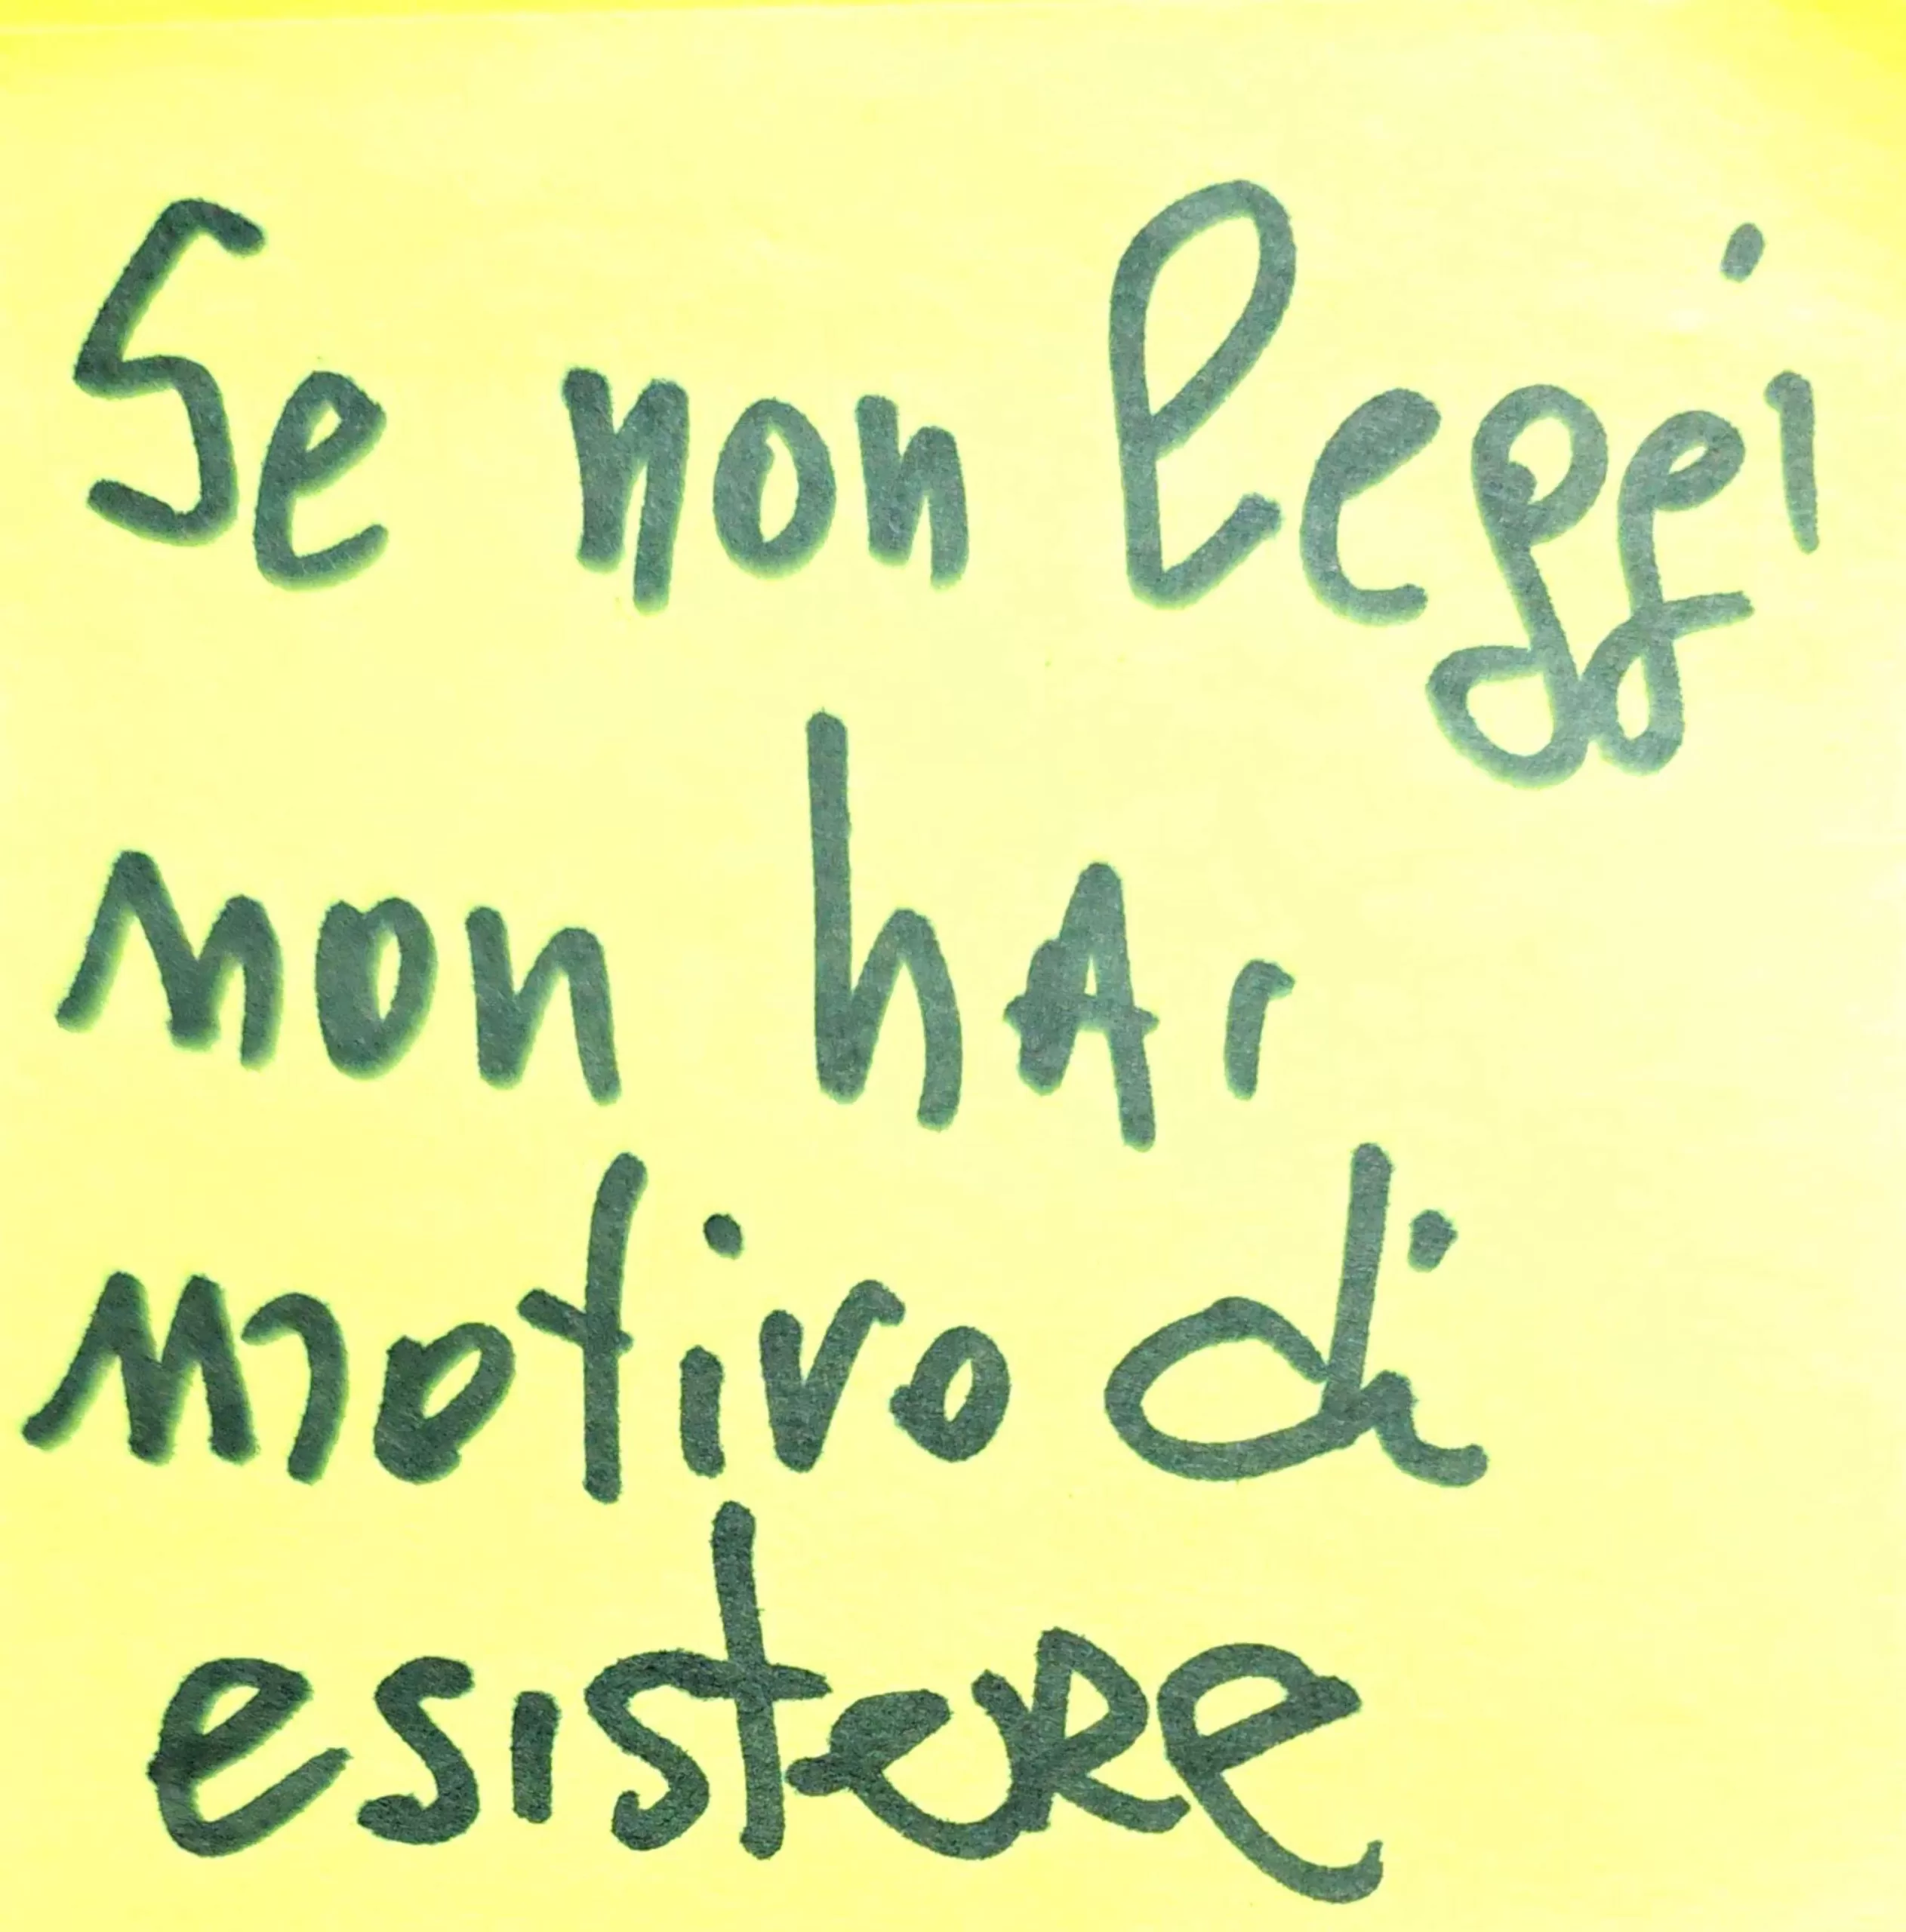 Se non leggi
non hAi
motivo di
esisteRe